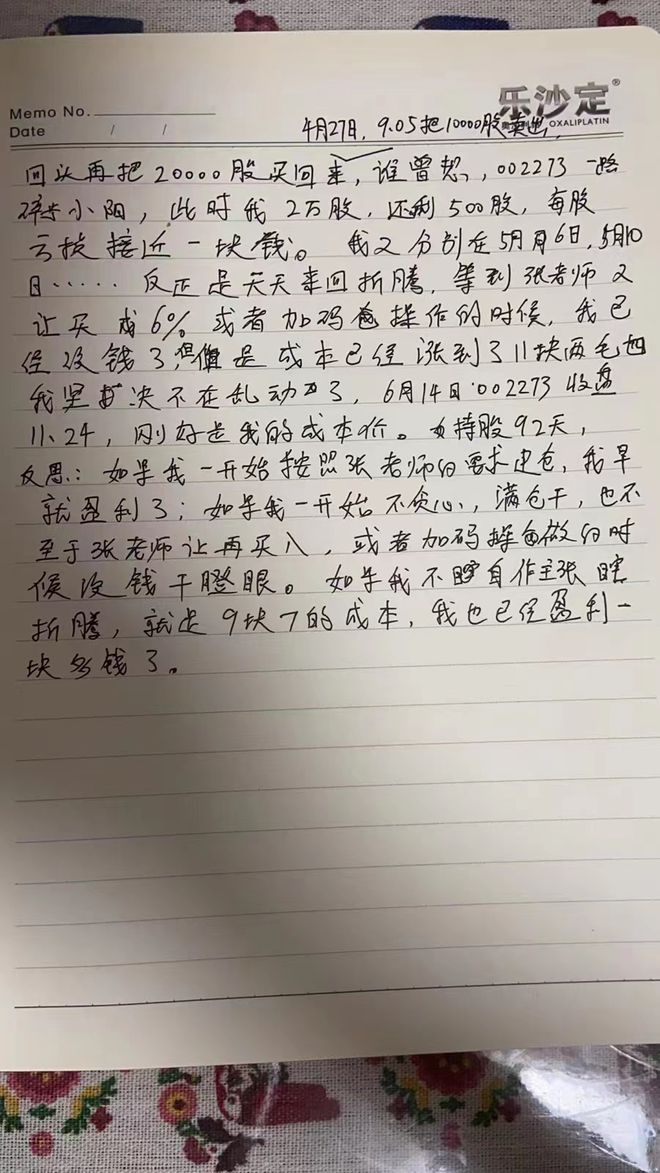 乐沙定®
Memo No.
OXALIPLATIN
Date / /
4月27日,9.05把10000股卖出,
回头再把20000股买回来,谁曾想,002273一路
碎步小阳,此时我2万股,还剩500股,每股
亏损接近一块钱。我又分别在5月6日,5月10
日……反正是天天来回折腾,等到张老师又
让买成6%或者加码操作的时候,我已
经没钱了,但是成本已经涨到了11块两毛四
我坚决不在乱动了,6月14日002273收盘
11.24,刚好是我的成本价。持股92天,
反思:如果我一开始按照张老师的要求建仓,我早
就盈利了;如果我一开始不贪心,满仓干,也不
至于张老师让再买入,或者加码操做的时
候没钱干瞪眼。如果我不自作主张瞎
折腾,就是9块7的成本,我也已经盈利一
块多钱了。